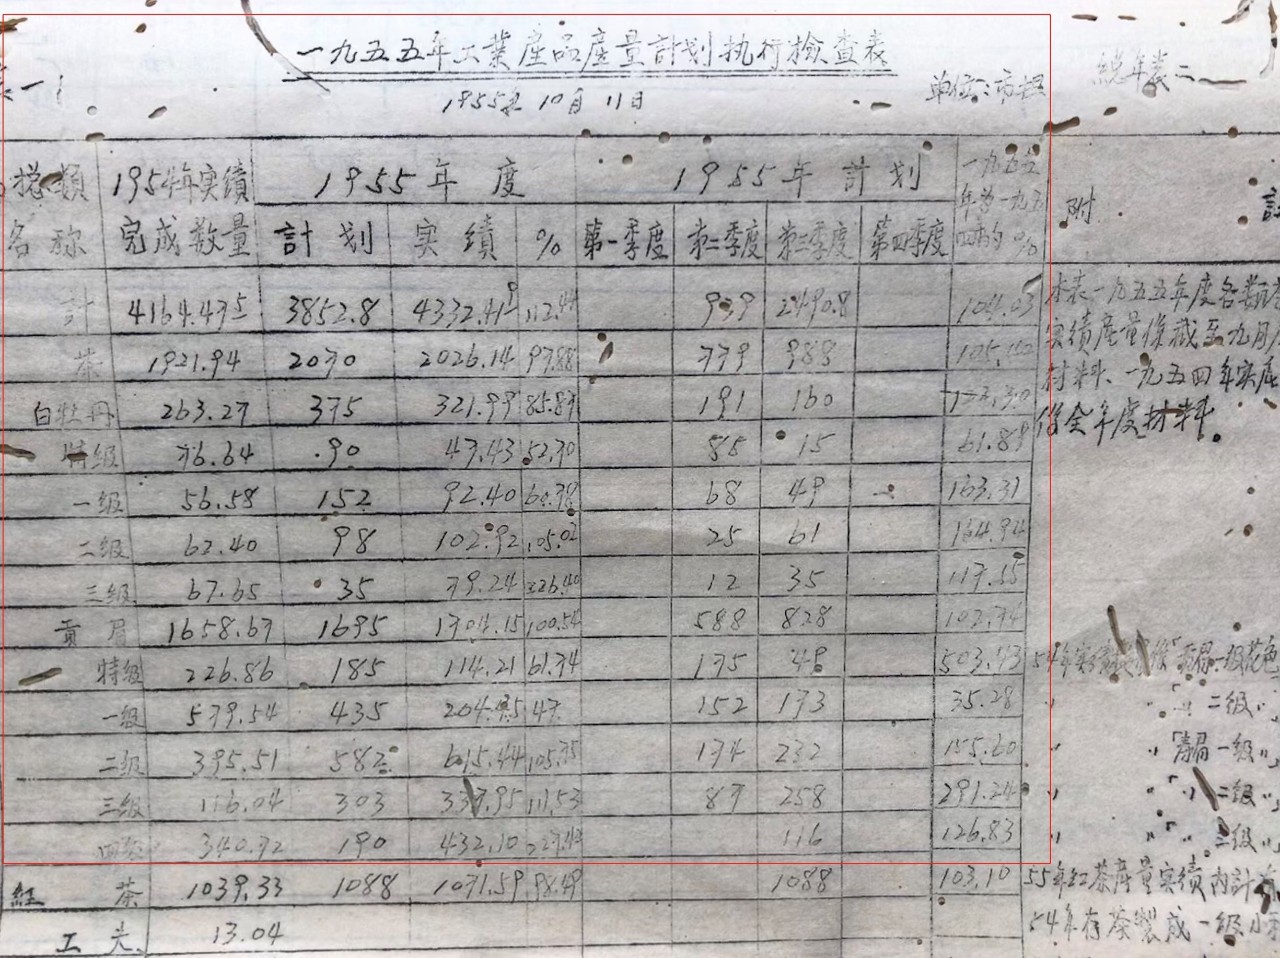 一九五五年工業產品產量計划执行檢查表
1955年10月11日
单位:市担
總年表二
表一
種類名称 1954年实績完成数量 1955年度 1955年計划 一九五五年为一九五四的% 附
計划 实績 % 第一季度 第二季度 第三季度 第四季度
計 4164.435 3852.8 4332.419 112.44 939 2490.8 104.03
茶 1921.94 2070 2026.14 97.88 779 988 105.42
白牡丹 263.27 375 321.99 85.87 191 160
特级 76.64 90 47.43 52.70 15 61.89
一级 56.58 152 92.40 60.78 68 49 163.31
二级 62.40 98 102.92 105.02 25 61 164.94
三级 67.65 35 79.24 226.40 12 35 117.15
貢眉 1658.67 1695 1704.15 100.54 588 828 102.74
特级 226.86 185 114.21 61.74 175 48 503.43
一级 579.54 435 47 152 173 35.28
二级 395.51 582 615.44 105.75 174 232 155.60
三级 116.04 303 337.95 111.53 87 258 291.24
四级 340.72 190 432.10 227.42 116 126.83
紅茶 1039.33 1088 1071.59 98.49 1088 103.10
工夫 13.04
本表一九五五年度各類
实績產量係截至九月
材料、一九五四年实
係全年度材料。
54年实績 一级花色
二级
寿眉一级
二级
三级
55年红茶產量实績内計
54年存茶製成一级小